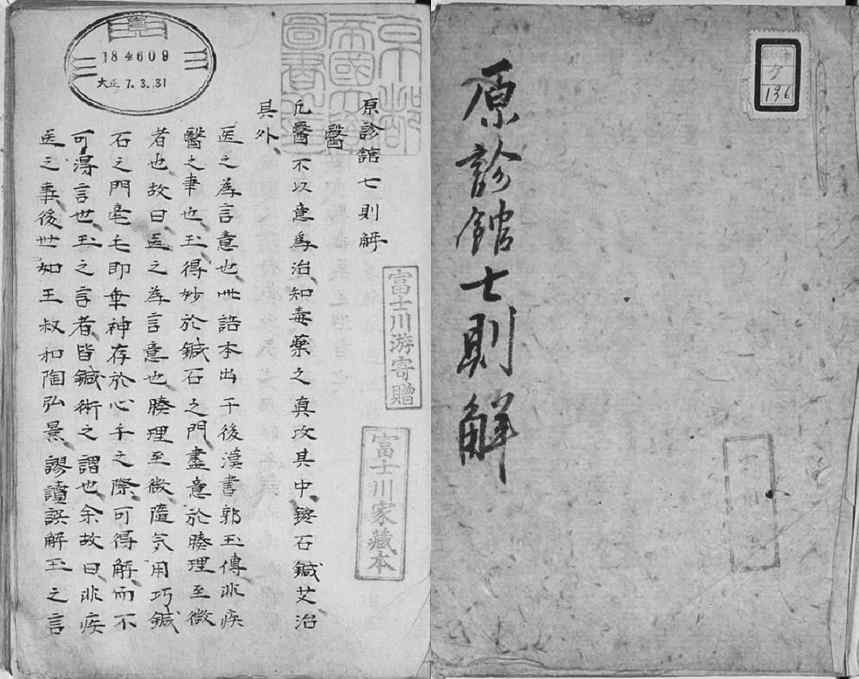 136
原診舘七則解
京都
帝國大學
圖書之印
184609
大正 7.3.31
富士川游寄贈
富士川家藏本
原診舘七則解
醫
凡醫不以意爲治知毒藥之真攻其中石鍼艾治
其外
医之爲言意也此語本出于後漢書郭玉傳非疾
醫之事也玉得妙於鍼石之門盡意於腠理至微
者也故曰医之爲言意也腠理至微隨氣用巧鍼
石之門毫毛即乖神存於心手之際可得解而不
可得言世玉之言者皆鍼術之謂也余故曰非疾
医之事後世如王叔和陶弘景謬讀誤解玉之言